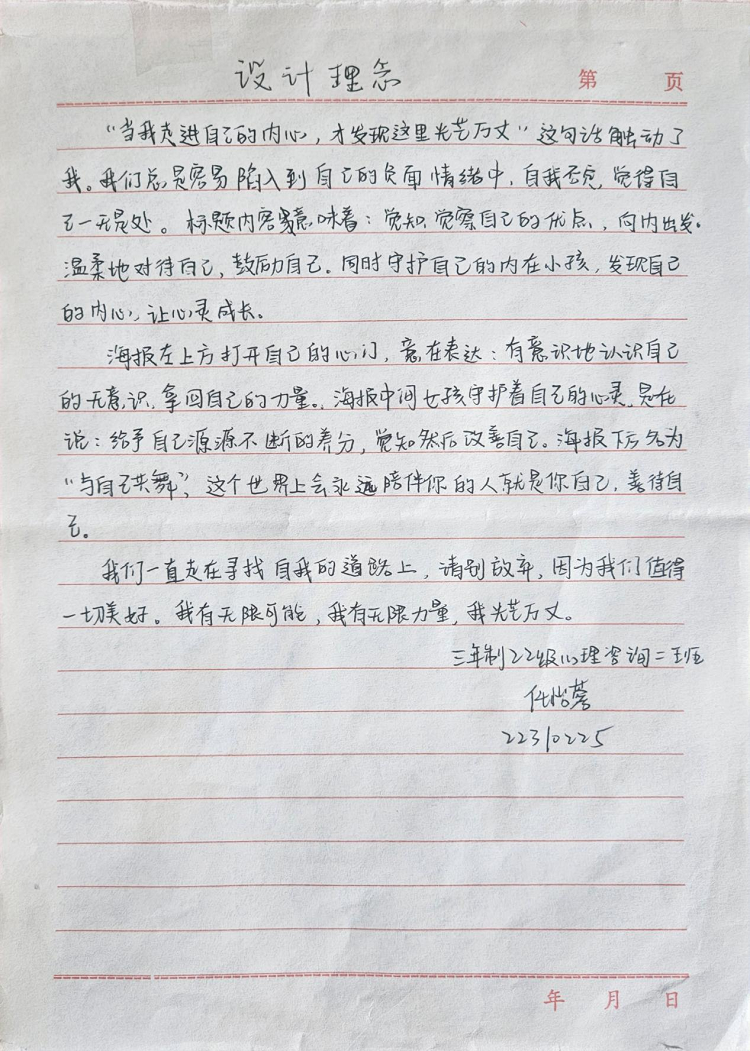 设计理念
第 页
“当我走进自己的内心，才发现这里光芒万丈”这句话触动了
我。我们总是容易陷入到自己的负面情绪中，自我否定，觉得自
己一无是处。标题内容意味着：觉知、觉察自己的优点，向内出发，
温柔地对待自己，鼓励自己。同时守护自己的内在小孩，发现自己
的内心，让心灵成长。
海报左上方打开自己的心门，意在表达：有意识地认识自己
的无意识，拿回自己的力量。海报中间女孩守护着自己的心灵，是在
说：给予自己源源不断的养分，觉知然后改善自己。海报下方名为
“与自己共舞”，这个世界上会永远陪伴你的人就是你自己，善待自
己。
我们一直走在寻找自我的道路上，请别放弃，因为我们值得
一切美好。我有无限可能，我有无限力量，我光芒万丈。
三年制22级心理咨询二班
任
22310225
年 月 日